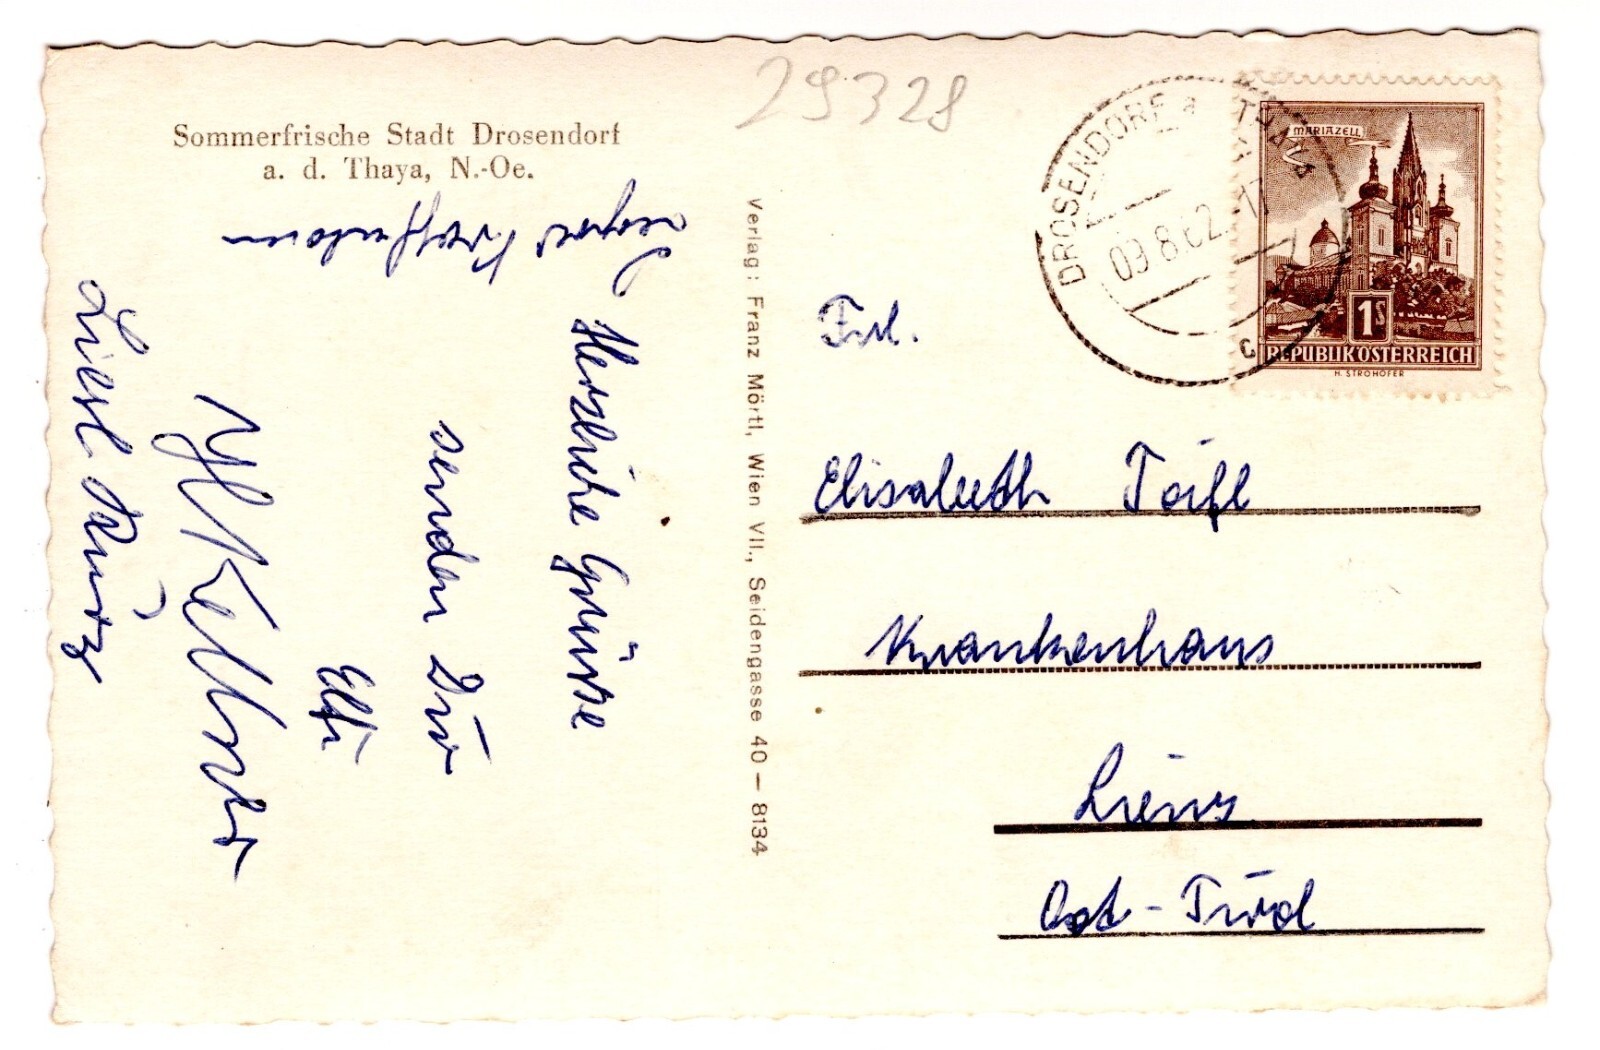 Sommerfrische Stadt Drosendorf
a. d. Thaya, N.-Oe.
29328
DROSENDORF a. d. THAYA
09.8.62
c
MARIAZELL
1S
REPUBLIK ÖSTERREICH
H. STROHOFER
Herzliche Grüsse
senden Dir
Elfi
Liesl Kurz
Verlag: Franz Mörtl, Wien VII., Seidengasse 40 — 8134
Frl.
Elisabeth
Krankenhaus
Lienz
Ost-Tirol